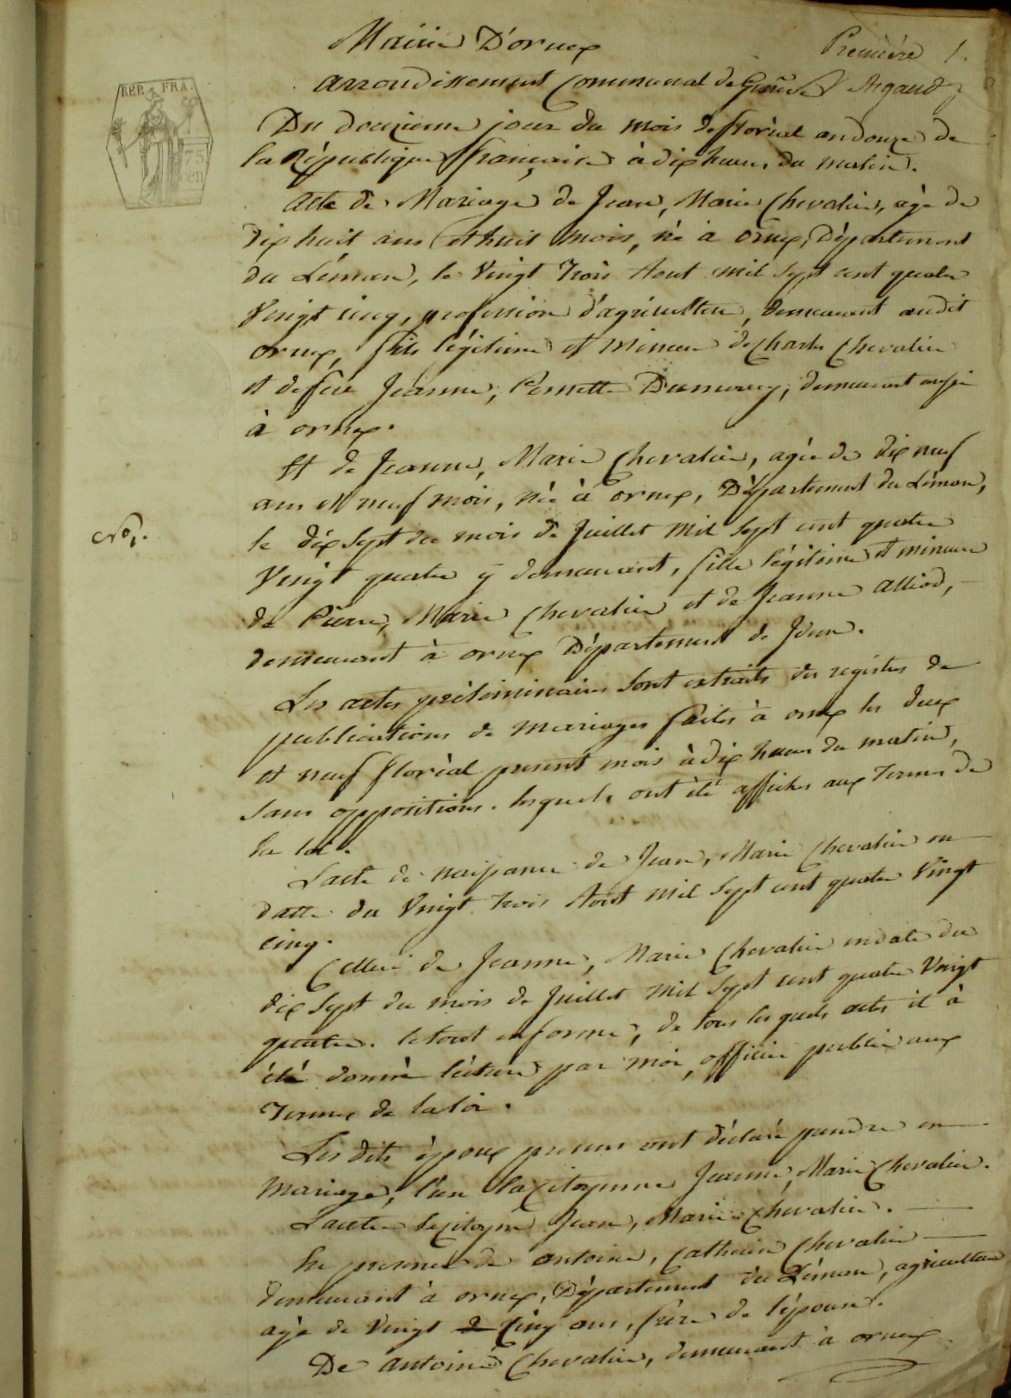 Mairie D'ornex
Première 1.
arrondissement Communal de Genève Rigaud
REP. FRA.
75
CEN
Du douzieme jour du mois de floréal an douze de
la République française à dix heures du matin.
acte de Mariage de Jean, Marie Chevalier, agé de
dix huit ans et huit mois, né à ornex, Département
du Léman, le Vingt trois Aout mil sept cent quatre
Vingt cinq, profession d'agriculteur, demeurant audit
ornex, fils légitime et mineur de Charles Chevalier
et de feue Jeanne, Pernette Dumurey, demeurant aussi
à ornex.
Et de Jeanne, Marie Chevalier, agée de dix neuf
ans et neuf mois, née à ornex, Département du Léman,
le dix sept du mois de Juillet mil sept cent quatre
Vingt quatre y demeurant, fille légitime et mineure
de Pierre, Marie Chevalier et de Jeanne alliod,
demeurant à ornex Département de
Les actes préliminaires sont extraits des registres de
publications de mariages faites à ornex les deux
et neuf floréal present mois à dix heures du matin,
sans oppositions. lesquels ont été affichés aux termes de
la loi.
L'acte de naissance de Jean, Marie Chevalier en
datte du Vingt trois Aout mil sept cent quatre Vingt
cinq.
Celui de Jeanne, Marie Chevalier en date du
dix sept du mois de Juillet mil sept cent quatre Vingt
quatre. le tout en forme, de tous lesquels actes il à
été donné lecture par moi, officier public aux
Termes de la loi.
Les dits époux presens ont déclaré prendre en
mariage, l'un la Citoyenne Jeanne, Marie Chevalier.
L'autre le Citoyen Jean, Marie Chevalier.
En presence de antoine, Catherin Chevalier
demeurant à ornex, Département du Léman, agriculteur
agé de Vingt Cinq ans, frère de l'épouse.
De antoine Chevalier, demeurant à ornex